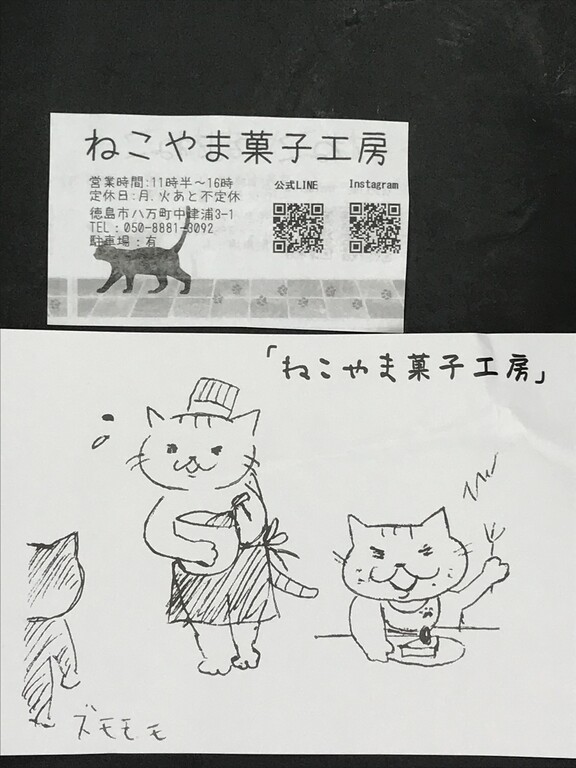 ねこやま菓子工房
営業時間:11時半～16時
定休日:月、火あと不定休
徳島市八万町中津浦3-1
TEL:050-8881-3092
駐車場:有
公式LINE
Instagram
「ねこやま菓子工房」
ズモモモ